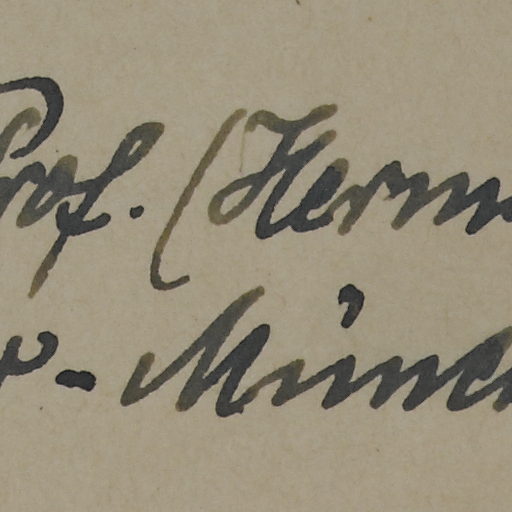 Prof. (Herm
- Münch